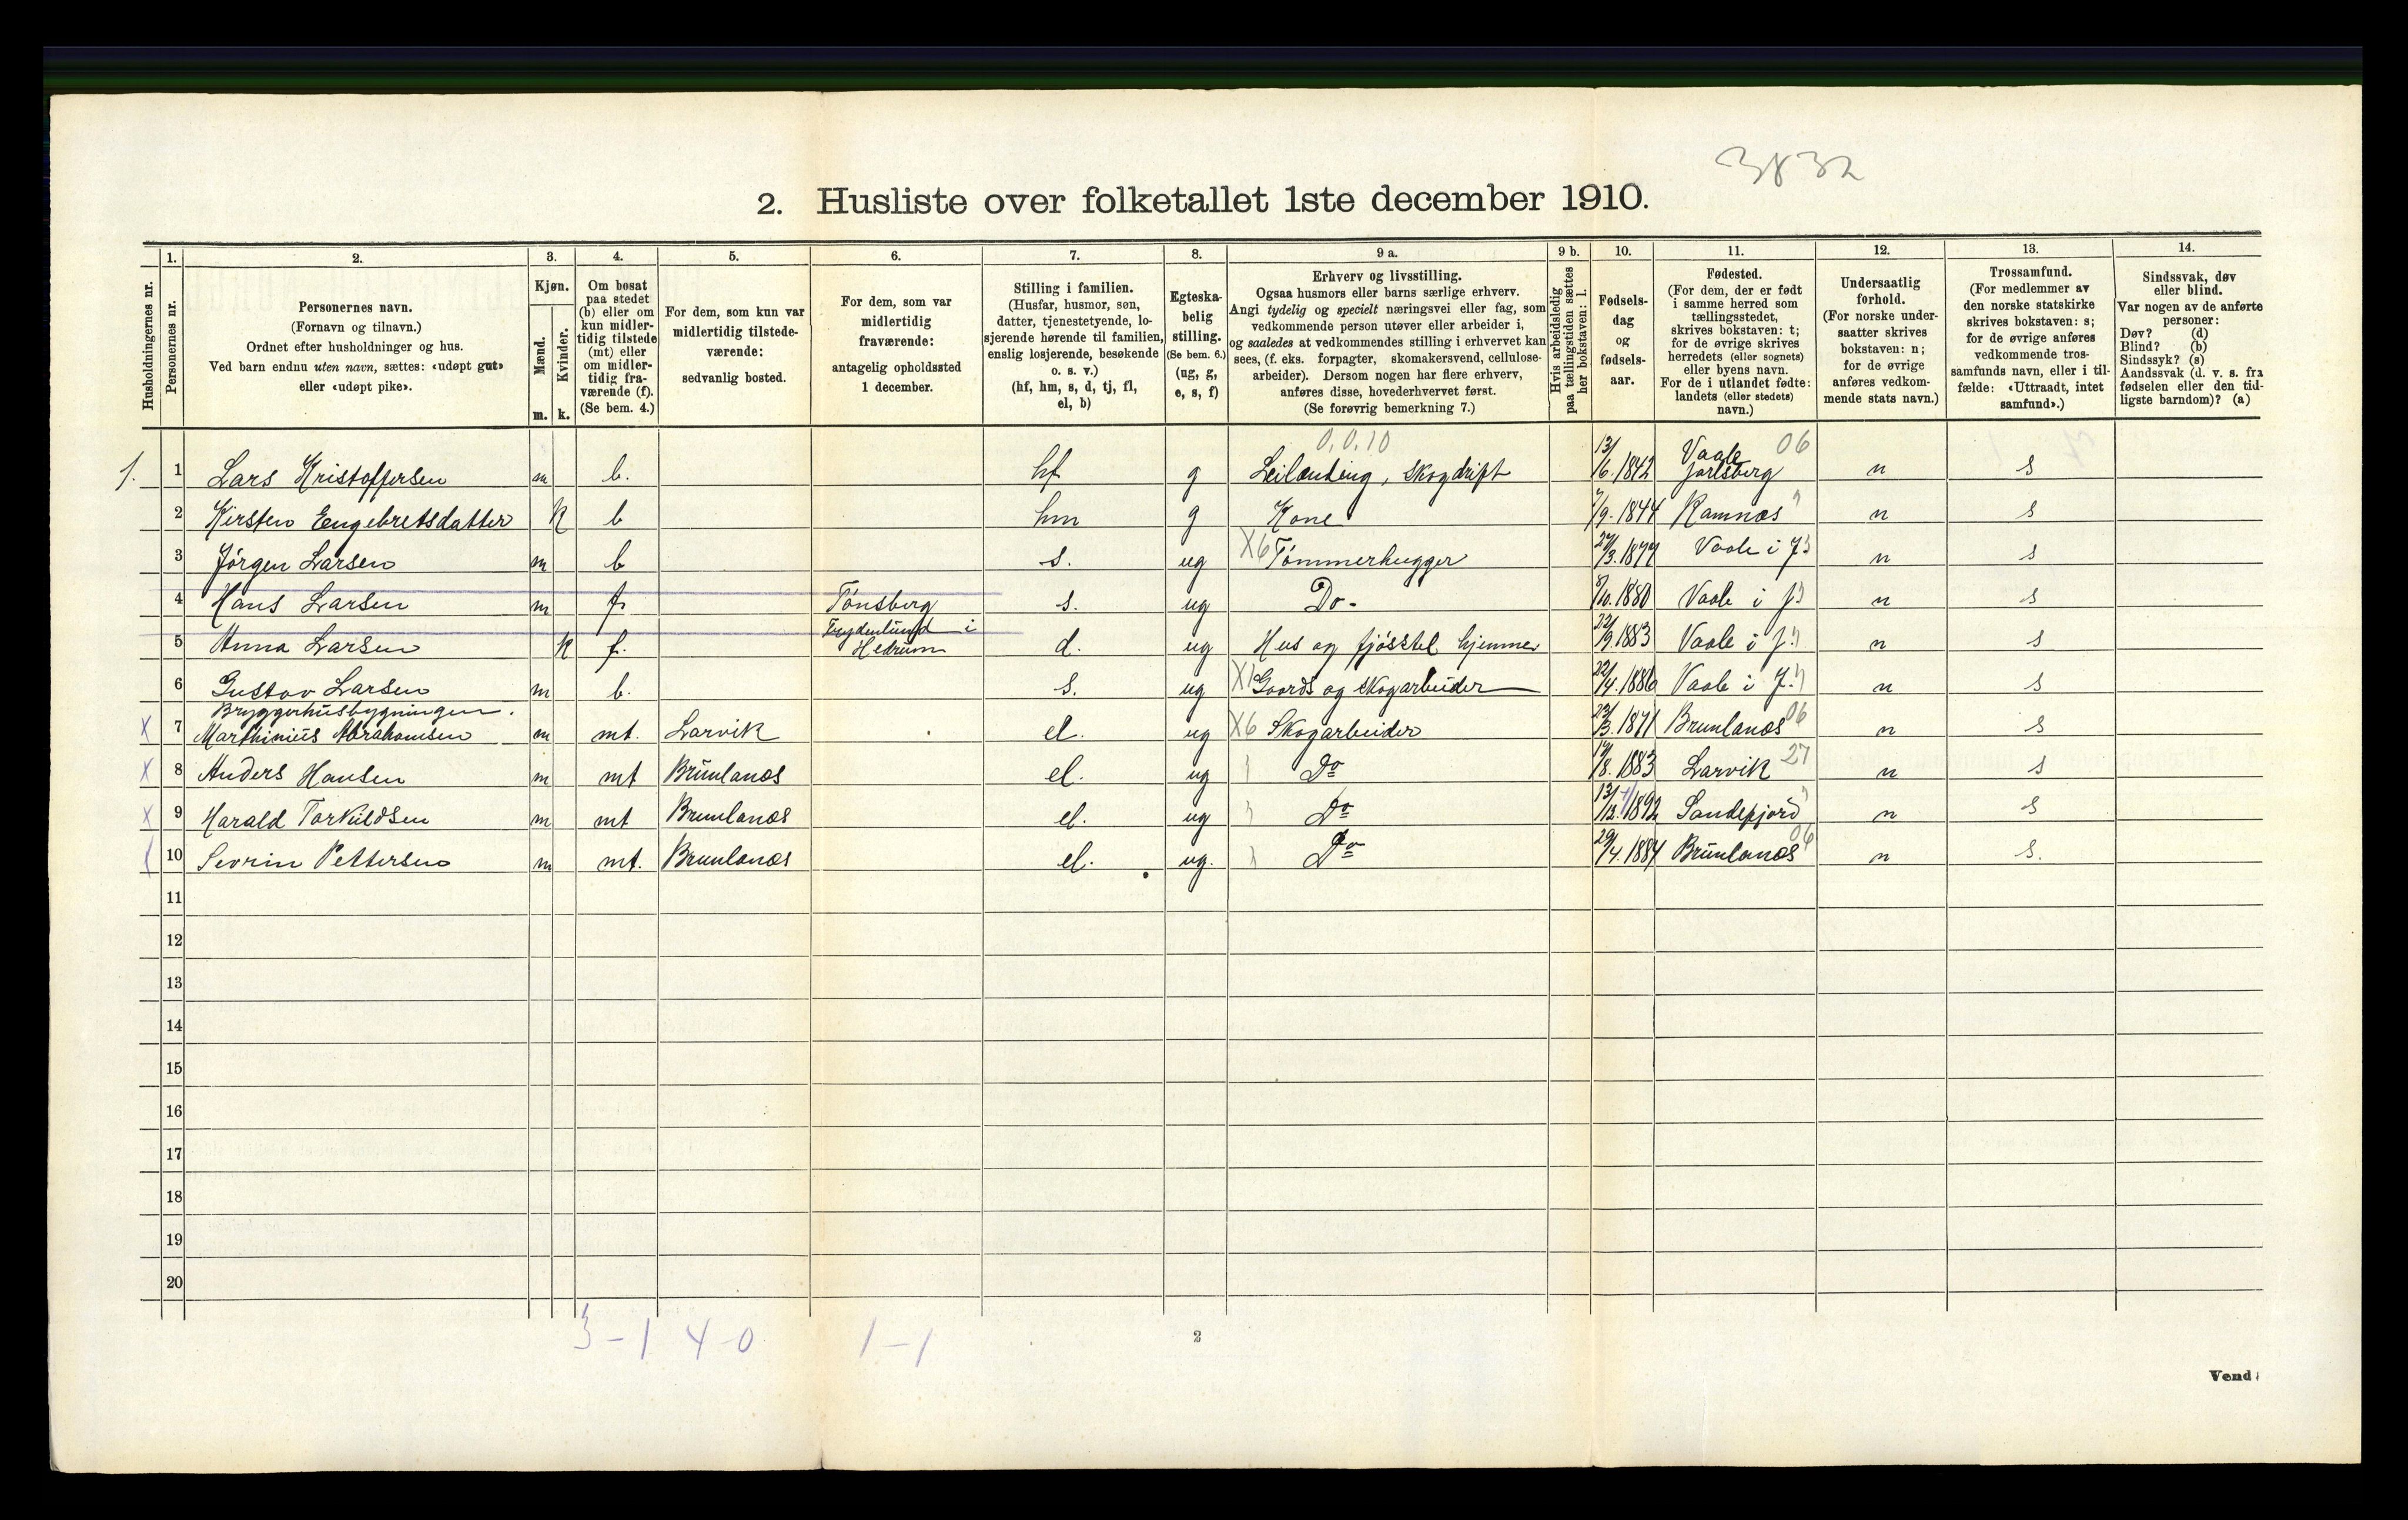 3832
2. Husliste over folketallet 1ste december 1910.
Husholdningernes nr.
1.
Personernes nr.
2.
Personernes navn.
(Fornavn og tilnavn.)
Ordnet efter husholdninger og hus.
Ved barn endnu uten navn, sættes: «udøpt gut»
eller «udøpt pike».
3.
Kjøn.
Mænd.
Kvinder.
m.
k.
4.
Om bosat
paa stedet
(b) eller om
kun midler-
tidig tilstede
(mt) eller
om midler-
tidig fra-
værende (f).
(Se bem. 4.)
5.
For dem, som kun var
midlertidig tilstede-
værende:
sedvanlig bosted.
6.
For dem, som var
midlertidig
fraværende:
antagelig opholdssted
1 december.
7.
Stilling i familien.
(Husfar, husmor, søn,
datter, tjenestetyende, lo-
sjerende hørende til familien,
enslig losjerende, besøkende
o. s. v.)
(hf, hm, s, d, tj, fl,
el, b)
8.
Egteska-
belig
stilling.
(Se bem. 6.)
(ug, g,
e, s, f)
9 a.
Erhverv og livsstilling.
Ogsaa husmors eller barns særlige erhverv.
Angi tydelig og specielt næringsvei eller fag, som
vedkommende person utøver eller arbeider i,
og saaledes at vedkommendes stilling i erhvervet kan
sees, (f. eks. forpagter, skomakersvend, cellulose-
arbeider). Dersom nogen har flere erhverv,
anføres disse, hovederhvervet først.
(Se forøvrig bemerkning 7.)
9 b.
Hvis arbeidsledig
paa tællingstiden sættes
her bokstaven: l.
10.
Fødsels-
dag
og
fødsels-
aar.
11.
Fødested.
(For dem, der er født
i samme herred som
tællingsstedet,
skrives bokstaven: t;
for de øvrige skrives
herredets (eller sognets)
eller byens navn.
For de i utlandet fødte:
landets (eller stedets)
navn.)
12.
Undersaatlig
forhold.
(For norske under-
saatter skrives
bokstaven: n;
for de øvrige
anføres vedkom-
mende stats navn.)
13.
Trossamfund.
(For medlemmer av
den norske statskirke
skrives bokstaven: s;
for de øvrige anføres
vedkommende tros-
samfunds navn, eller i til-
fælde: «Uttraadt, intet
samfund».)
14.
Sindssvak, døv
eller blind.
Var nogen av de anførte
personer:
Døv? (d)
Blind? (b)
Sindssyk? (s)
Aandssvak (d. v. s. fra
fødselen eller den tid-
ligste barndom)? (a)
0.0.10
1. 1 Lars Kristoffersen m b. hf g Leilending, skogdrift 13/6.1842 Vaale Jarlsberg 06 n s
2 Kirsten Engebretsdatter k b hm g Kone 7/9.1844 Ramnæs n s
3 Jørgen Larsen m b s. ug X6 Tømmerhugger 27/3.1877 Vaale i J n s
4 Hans Larsen m f. Tønsberg s. ug Do. 8/10.1880 Vaale i J n s
5 Anna Larsen k f. Frydenlund i Hedrum d. ug Hus og fjøsstel hjemme 22/9.1883 Vaale i J. n s
6 Gustav Larsen m b. s. ug X1 Gaards og skogarbeider 22/4.1886 Vaale i J. n s
Bryggerhusbygningen.
X 7 Marthinius Abrahamsen m mt. Larvik el. ug X6 Skogarbeider 23/3.1871 Brunlanæs 06 n s
X 8 Anders Hansen m mt Brunlanæs el. ug Do 19/8.1883 Larvik 27 n s
X 9 Harald Torkildsen m mt Brunlanæs el. ug Do 13/12.1892 Sandefjord n s
10 Sevrin Pettersen m mt. Brunlanæs el. ug. Do 29/4.1884 Brunlanæs 06 n s.
11
12
13
14
15
16
17
18
19
20
3-1 4-0 1-1
2
Vend